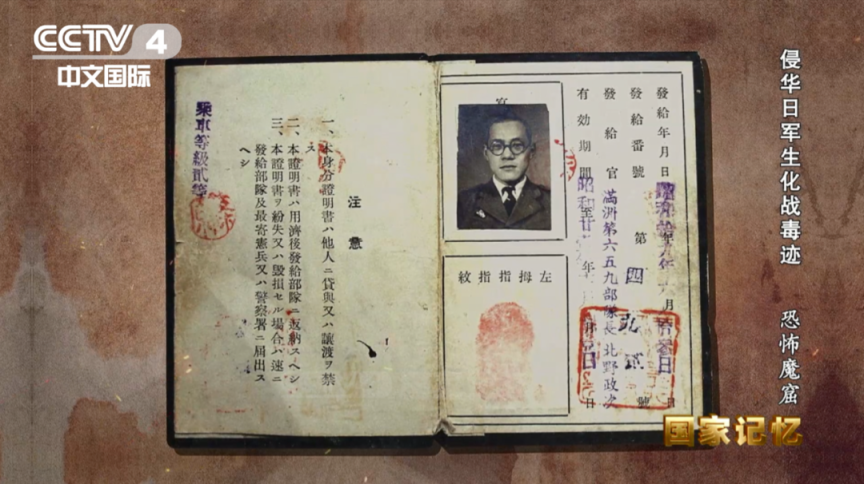 CCTV 4
中文国际
侵华日军生化战毒迹 恐怖魔窟
發給年月日
發給番號 第四 號
發給官 滿洲第六五九部隊長 北野政次
有効期間 至 年 月 日
左拇指指紋
注意
一、本身分證明書ハ他人ニ貸與又ハ讓渡ヲ禁
ス
二、本證明書ハ用濟後發給部隊ニ返納スヘシ
三、本證明書ヲ紛失又ハ毀損セル場合ハ速ニ
發給部隊及最寄憲兵又ハ警察署ニ届出ス
ヘシ
乘車等級貳等
国家记忆